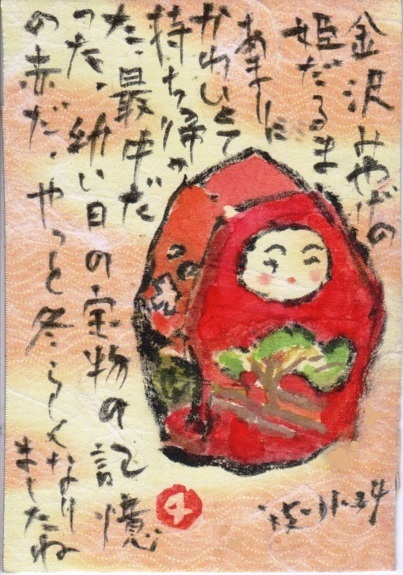 金沢みやげの
姫だるま、
あまりに
かわいくて
持ち帰っ
た、最中だ
った、幼い日の宝物の記憶
の赤だ、やっと冬らしくなり
ましたね